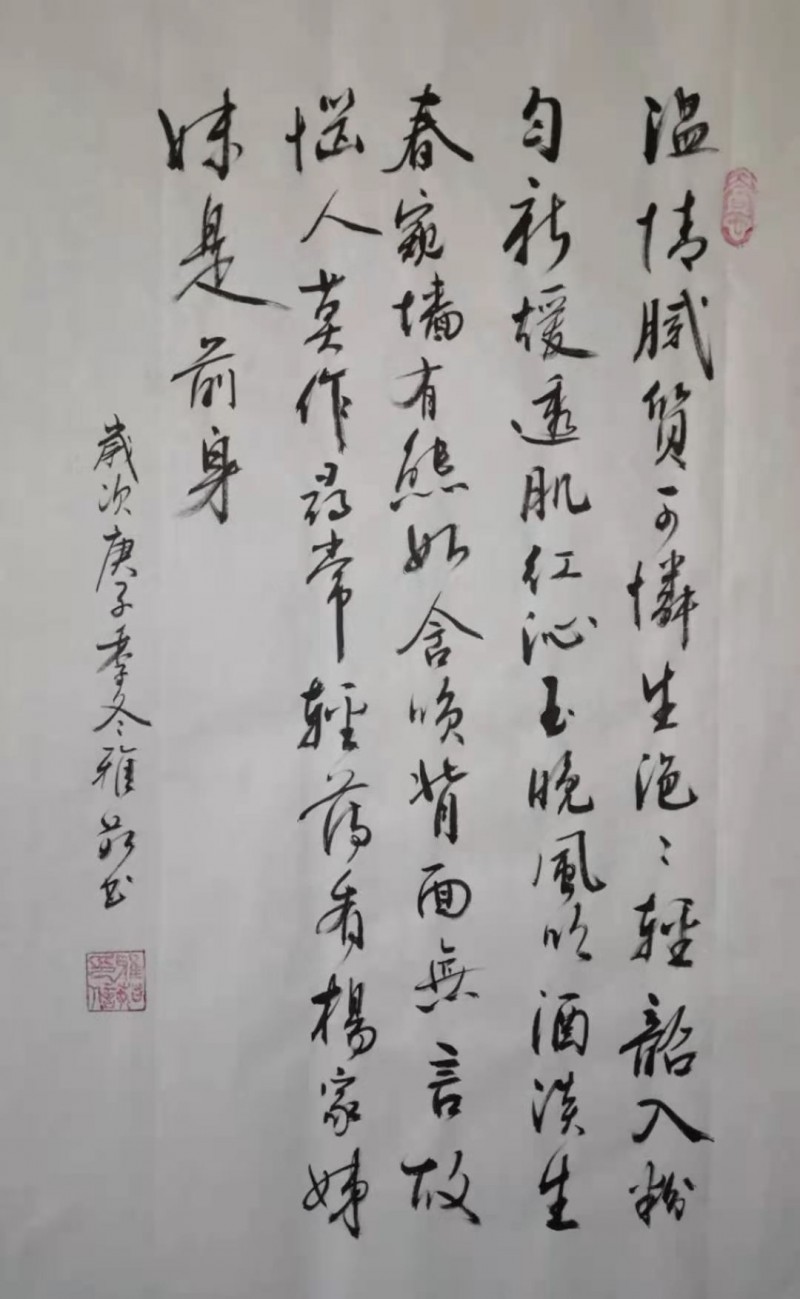 温情腻質可憐生浥々輕韶入粉
匀新煖透肌紅沁玉晚風吹酒淡生
春窺墻有態如含唉背面無言故
惱人莫作尋常輕薄看楊家姊
妹是前身
歲次庚子季冬雅茹书